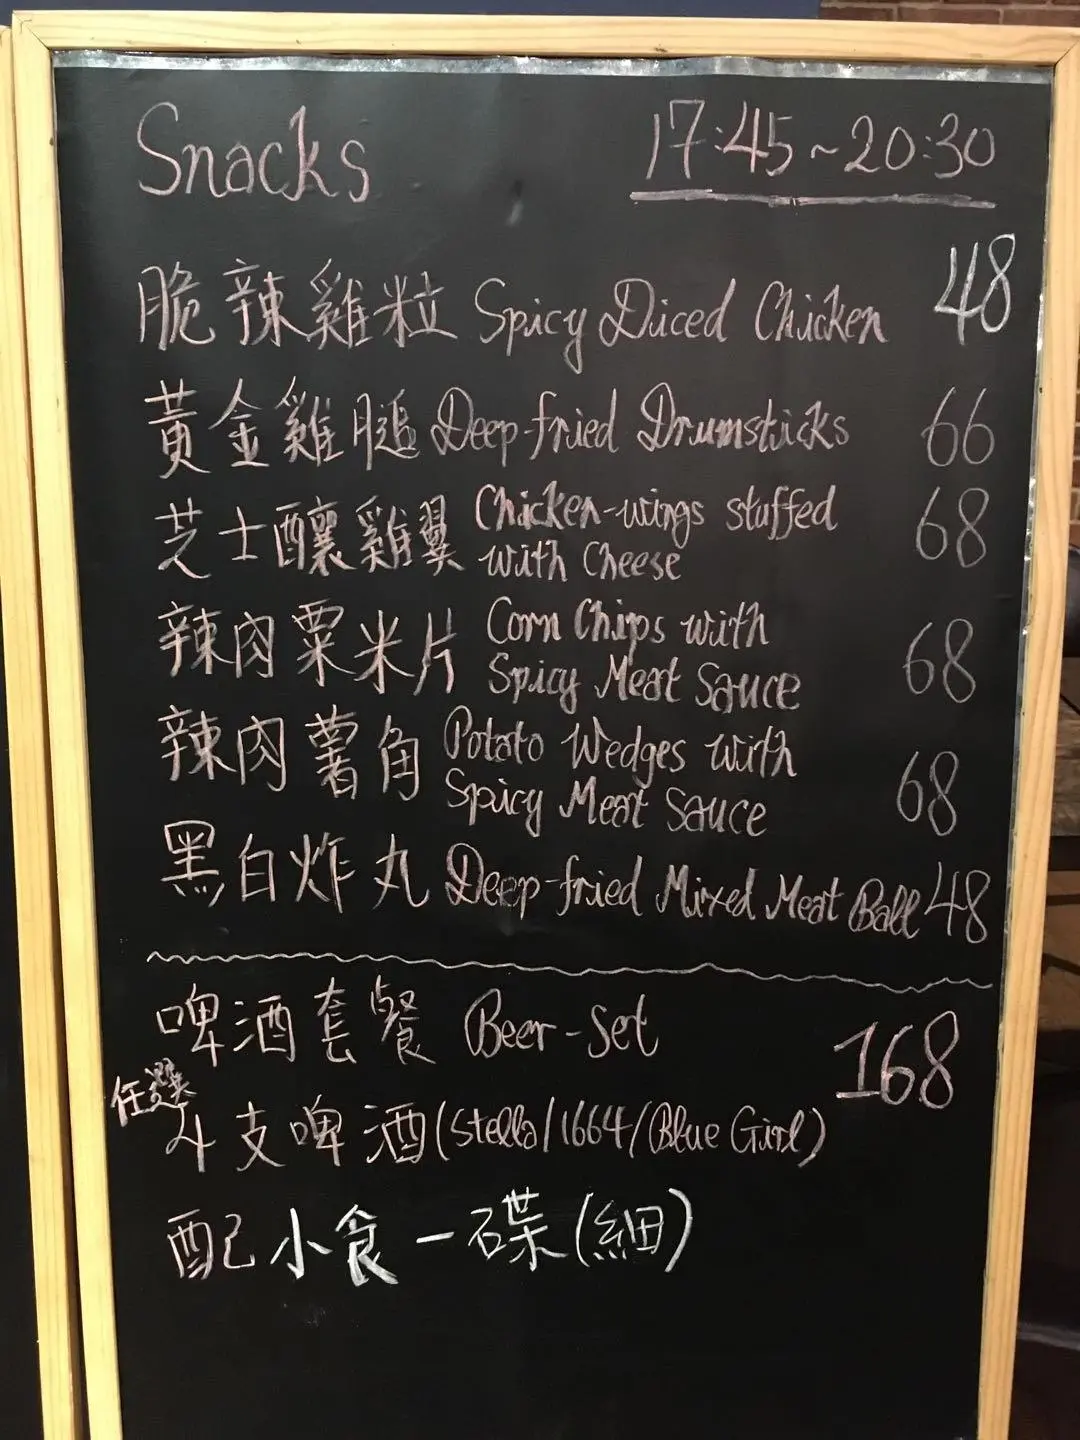 Snacks 17:45~20:30
脆辣雞粒 Spicy Diced Chicken 48
黃金雞腿 Deep-fried Drumsticks 66
芝士釀雞翼 Chicken-wings stuffed
with Cheese 68
辣肉粟米片 Corn Chips with
Spicy Meat Sauce 68
辣肉薯角 Potato Wedges with
Spicy Meat Sauce 68
黑白炸丸 Deep-fried Mixed Meat Ball 48
啤酒套餐 Beer-Set 168
任選
4支啤酒(Stella/1664/Blue Girl)
配小食一碟(細)